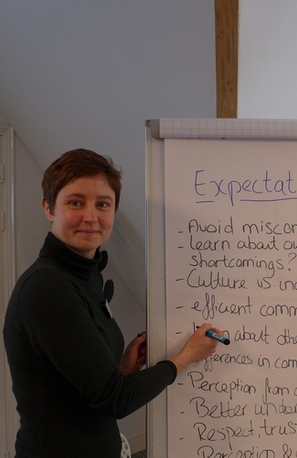 Expectat
- Avoid miscon
- learn about ou
shortcomings?
- Culture vs. in
- efficient comm
about othe
differences in com
- Perception from a
- Better unde
- Respect, trust
- Perception &